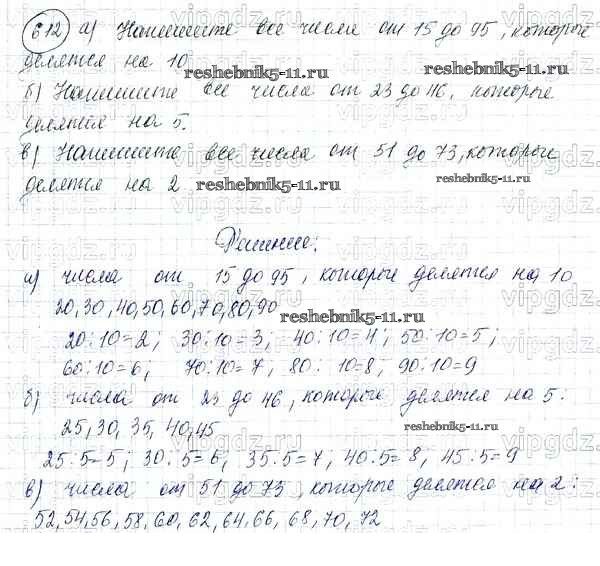 612 а) Напишите все числа от 15 до 95, которые
делятся на 10
reshebnik5-11.ru
б) Напишите все числа от 23 до 46, которые
делятся на 5.
в) Напишите все числа от 51 до 73, которые
делятся на 2
reshebnik5-11.ru
reshebnik5-11.ru
Решение:
а) числа от 15 до 95, которые делятся на 10
20, 30, 40, 50, 60, 70, 80, 90
reshebnik5-11.ru
20:10=2; 30:10=3; 40:10=4; 50:10=5;
60:10=6, 70:10=7, 80:10=8; 90:10=9
б) числа от 23 до 46, которые делятся на 5:
25, 30, 35, 40, 45
reshebnik5-11.ru
25:5=5; 30:5=6; 35:5=7; 40:5=8, 45:5=9
в) числа от 51 до 73, которые делятся на 2:
52, 54, 56, 58, 60, 62, 64, 66, 68, 70, 72